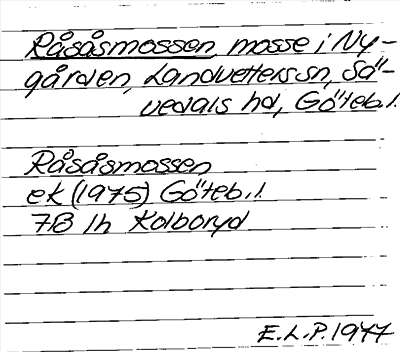 Råsåsmossen, mosse i Ny-
gården, Landvetters sn, Sä-
vedals hd, Göteb.l.
Råsåsmossen
ek (1975) Göteb.l.
7B 1h Kolboryd
E.L.P. 1977